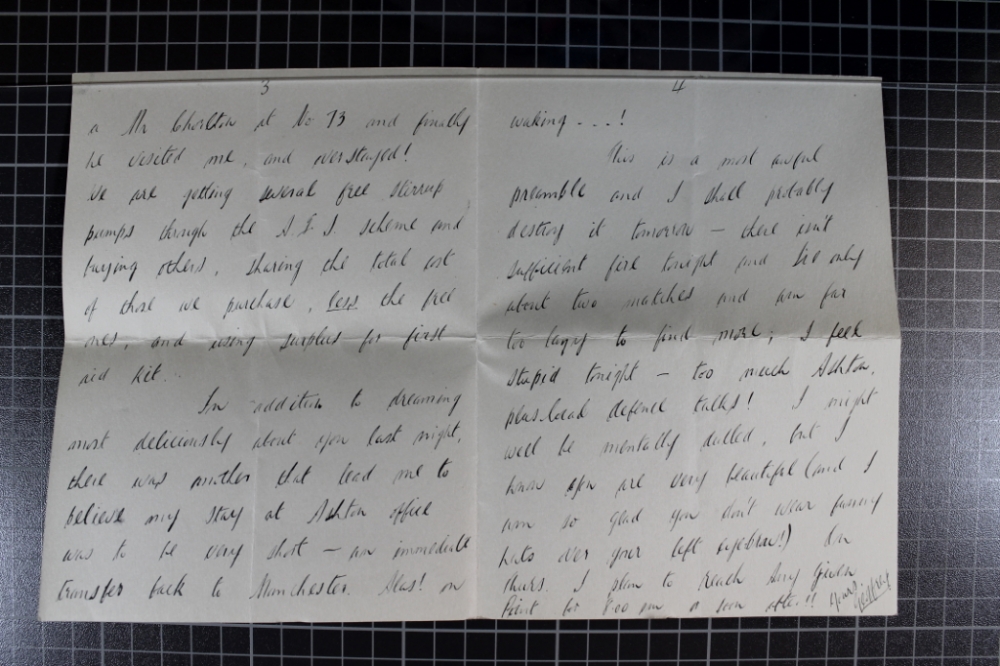 3
a Mr Chorlton at No 73 and finally
he visited me, and overstayed!
We are getting several free stirrup
pumps through the S.F.S. scheme and
buying others, sharing the total cost
of those we purchase, less the free
ones, and using surplus for first
aid kit.
In addition to dreaming
most deliciously about you last night,
there was another that lead me to
believe my stay at Ashton office
was to be very short – an immediate
transfer back to Manchester. Alas! on
4
waking - - - !
This is a most awful
preamble and I shall probably
destroy it tomorrow – there isn't
sufficient fire tonight and I've only
about two matches and am far
too lazy to find more; I feel
stupid tonight – too much Ashton,
plus local defence talks! I might
well be mentally dulled, but I
know you are very beautiful (and I
am so glad you don't wear funny
hats over your left eyebrow!) On
thurs. I plan to reach any given
point for 8.00 pm or soon after!! Yours
Geoffrey